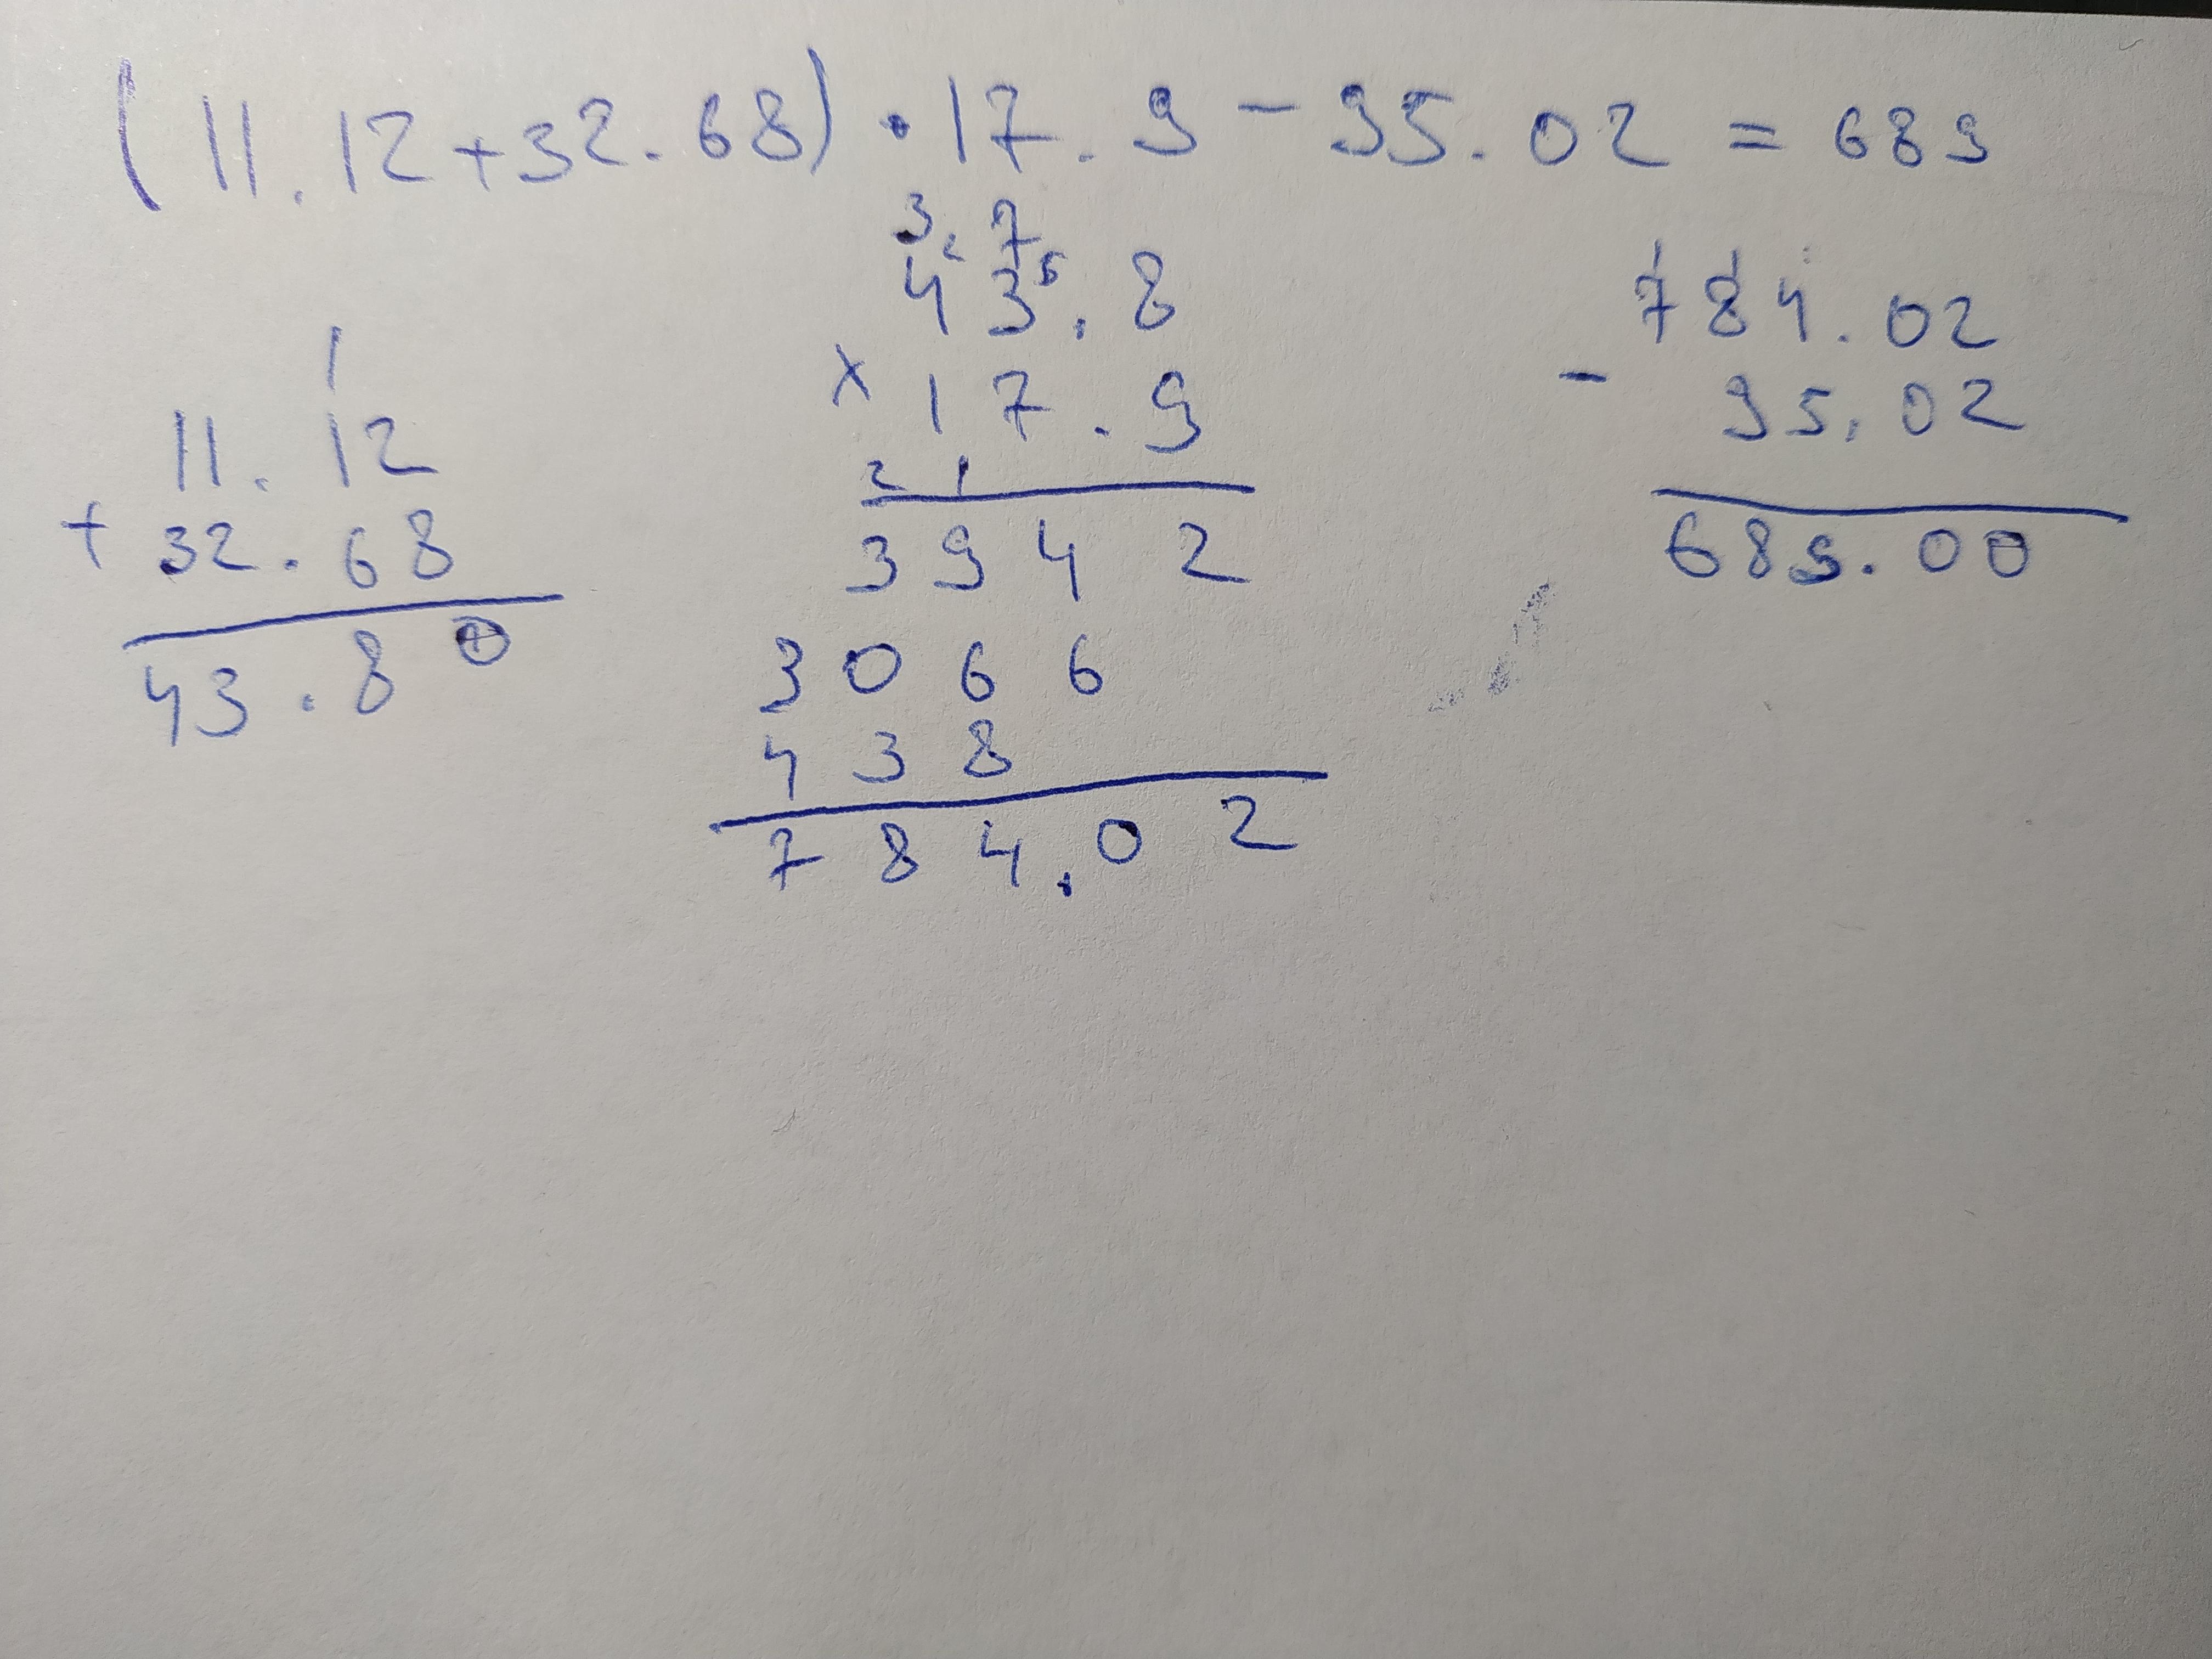 (11.12+32.68) • 17.9 - 95.02 = 689
1
11.12
+ 32.68
43.80
3 7
2 5
43.8
x 17.9
2 1
3942
3066
438
784.02
1 1
784.02
- 95.02
689.00